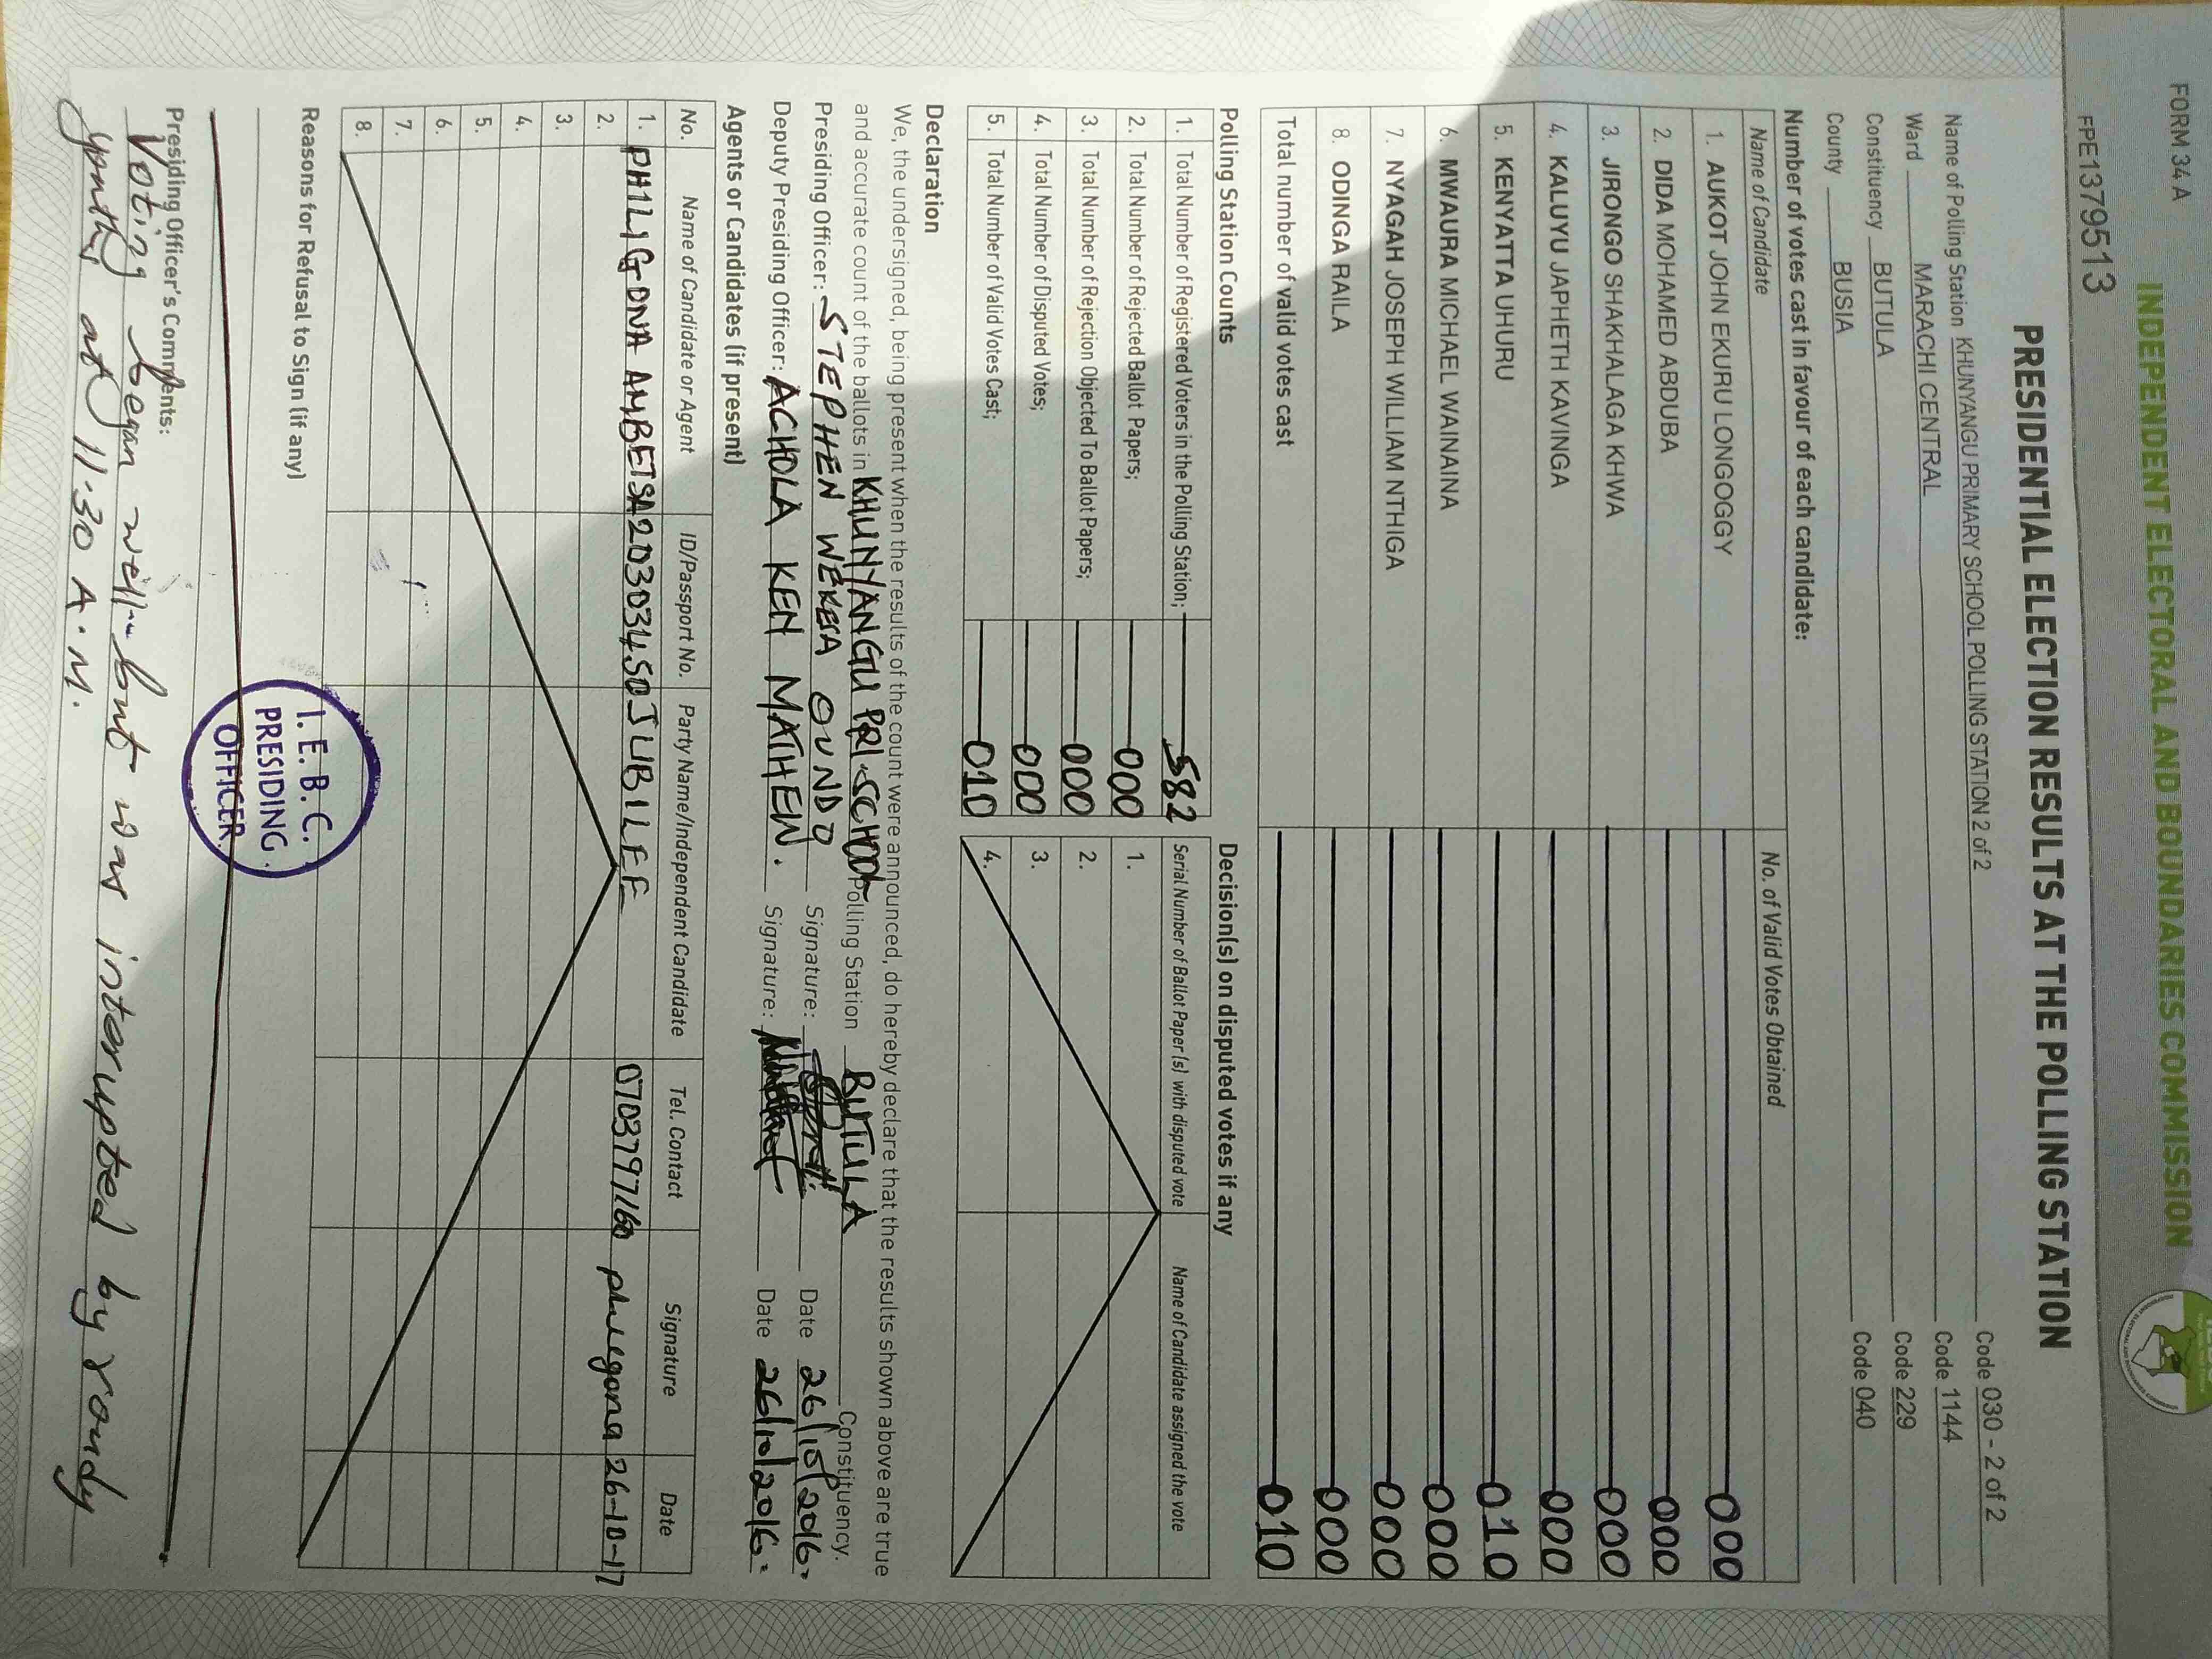 FORM 34 A
INDEPENDENT ELECTORAL AND BOUNDARIES COMMISSION
FPE1379513
PRESIDENTIAL ELECTION RESULTS AT THE POLLING STATION
Name of Polling Station KHUNYANGU PRIMARY SCHOOL POLLING STATION 2 of 2 Code 030 - 2 of 2
Ward MARACHI CENTRAL Code 1144
Constituency BUTULA Code 229
County BUSIA Code 040
Number of votes cast in favour of each candidate:
Name of Candidate No. of Valid Votes Obtained
1. AUKOT JOHN EKURU LONGOGGY 000
2. DIDA MOHAMED ABDUBA 000
3. JIRONGO SHAKHALAGA KHWA 000
4. KALUYU JAPHETH KAVINGA 000
5. KENYATTA UHURU 010
6. MWAURA MICHAEL WAINAINA 000
7. NYAGAH JOSEPH WILLIAM NTHIGA 000
8. ODINGA RAILA 000
Total number of valid votes cast 010
Polling Station Counts
1. Total Number of Registered Voters in the Polling Station; 582
2. Total Number of Rejected Ballot Papers; 000
3. Total Number of Rejection Objected To Ballot Papers; 000
4. Total Number of Disputed Votes; 000
5. Total Number of Valid Votes Cast; 010
Decision(s) on disputed votes if any
Serial Number of Ballot Paper (s) with disputed vote Name of Candidate assigned the vote
1.
2.
3.
4.
Declaration
We, the undersigned, being present when the results of the count were announced, do hereby declare that the results shown above are true
and accurate count of the ballots in KHUNYANGU PRI-SCHOOL Polling Station BUTULA Constituency.
Presiding Officer: STEPHEN WEKESA OUNDO Signature: Date 26/10/2016
Deputy Presiding Officer: ACHOLA KEN MATHEW. Signature: Date 26/10/2016
Agents or Candidates (if present)
No. Name of Candidate or Agent ID/Passport No. Party Name/Independent Candidate Tel. Contact Signature Date
1. PHILIGONA AMBETSA 20303450 JUBILEE 0703797160 philegona 26-10-17
2.
3.
4.
5.
6.
7.
8.
Reasons for Refusal to Sign (if any)
I. E. B. C.
PRESIDING
OFFICER
Presiding Officer's Comments:
Voting began well but was interupted by roudy
youths at 11.30 A.M.